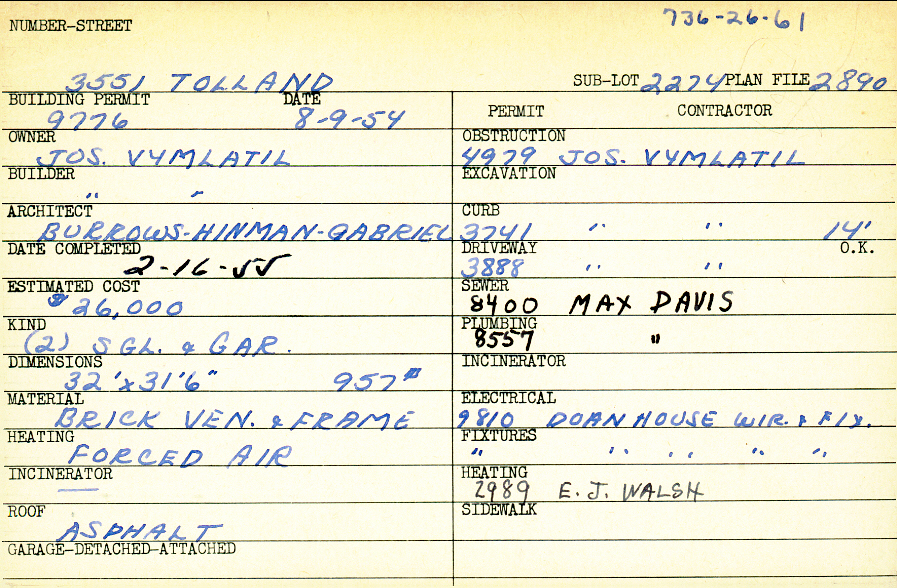 736-26-61
NUMBER-STREET
3551 TOLLAND SUB-LOT 2274 PLAN FILE 2890
BUILDING PERMIT DATE PERMIT CONTRACTOR
9776 8-9-54
OWNER OBSTRUCTION
JOS. VYMLATIL 4979 JOS. VYMLATIL
BUILDER EXCAVATION
" "
ARCHITECT CURB
BURROWS-HINMAN-GABRIEL 3741 " " 14'
DATE COMPLETED DRIVEWAY O.K.
2-16-55 3888 " "
ESTIMATED COST SEWER
$26,000 8400 MAX DAVIS
KIND PLUMBING
(2) SGL. & GAR. 8557 "
DIMENSIONS INCINERATOR
32'x31'6" 957#
MATERIAL ELECTRICAL
BRICK VEN. & FRAME 9810 DOAN HOUSE WIR. & FIX.
HEATING FIXTURES
FORCED AIR " " " " "
INCINERATOR HEATING
— 2989 E. J. WALSH
ROOF SIDEWALK
ASPHALT
GARAGE-DETACHED-ATTACHED